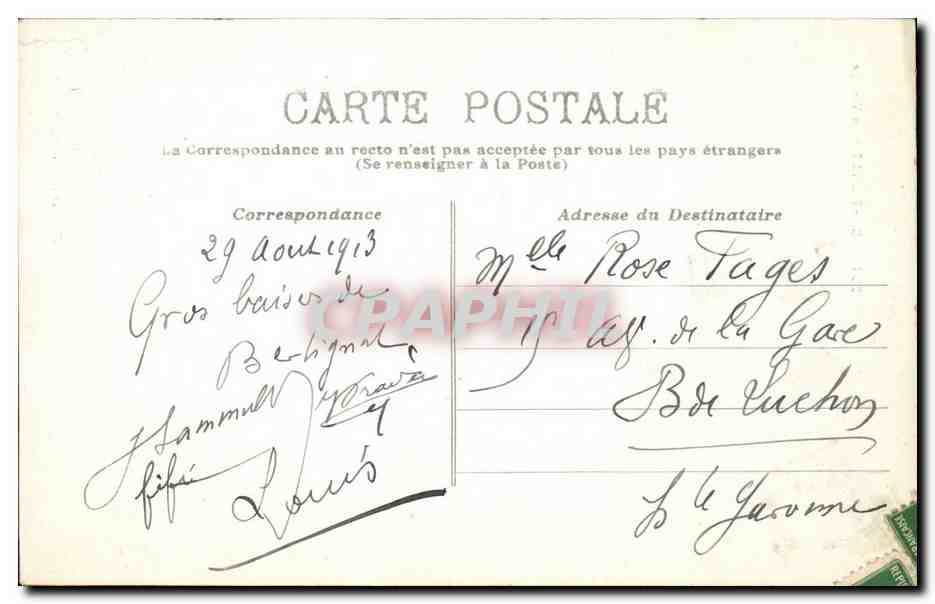 CARTE POSTALE
La Correspondance au recto n'est pas acceptée par tous les pays étrangers
(Se renseigner à la Poste)
Correspondance
29 Aout 1913
Gros baisers de
Bertignat
fifi
Louis
Adresse du Destinataire
Mlle Rose Fages
15 av. de la Gare
B de Luchon
Hte Garonne
CPAPHIL
FRANÇAISE
RÉP